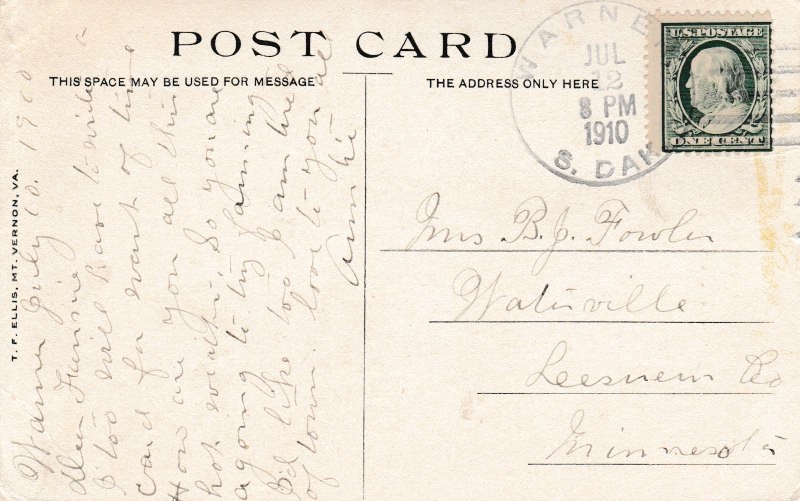 POST CARD
THIS SPACE MAY BE USED FOR MESSAGE
THE ADDRESS ONLY HERE
WARNE
JUL
12
8 PM
1910
S. DAK
U.S. POSTAGE
ONE CENT
T. F. ELLIS, MT. VERNON, VA.
Warner July 10. 1910
dear
I too will have to write
card for want of time
How are you all this
hot weather. So you are
agoing to try farming
I'd like too I am tired
of town. love to you all
B.J. Fowler
Waterville
Leesuern Co
Minnesota